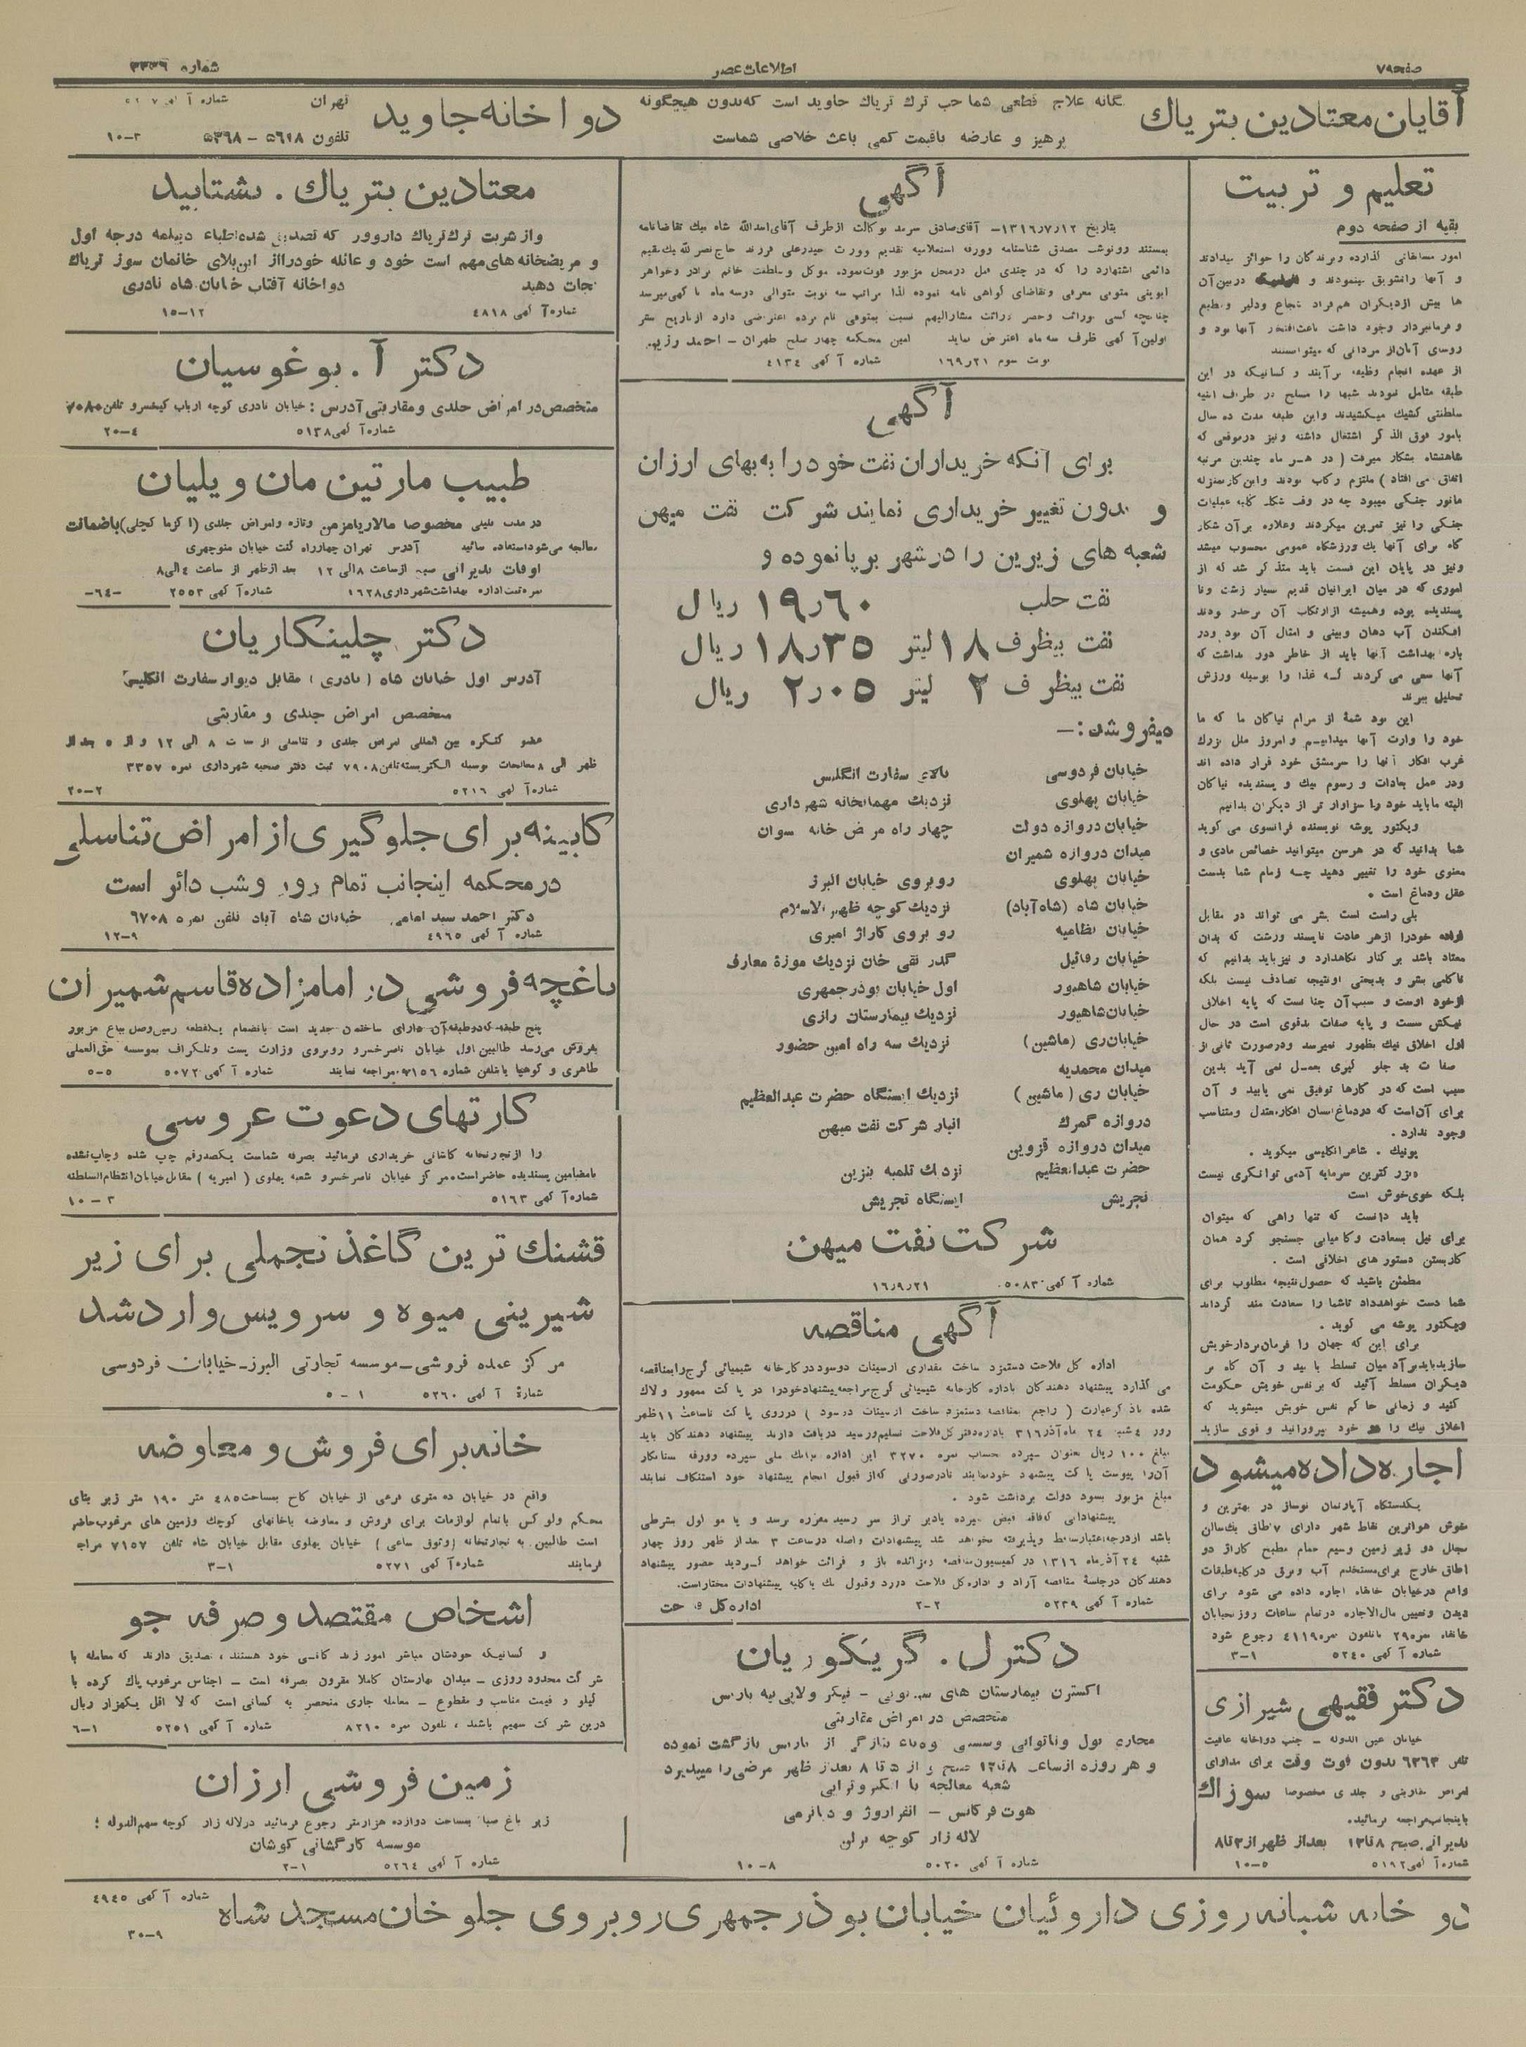 صفحه ۷۹
اطلاعات عصر
شماره ۳۳۳۶
آقایان معتادین بتریاك
یگانه علاج قطعی شما حب ترك تریاك جاوید است که بدون هیچگونه
پرهیز و عارضه باقیمت کمی باعث خلاصی شماست
دواخانه جاوید
تهران
تلفون ۵۶۱۸ - ۵۳۶۸
۱۰-۳
تعلیم و تربیت
بقیه از صفحه دوم
و آنها را تشویق مینمودند و دربین آن
ها بیش از دیگران هم افراد شجاع و دلیر و مطیع
و فرمانبردار وجود داشت باعث افتخار آنها بود و
روسای آنان از مردانی که میتوانستند
از عهده انجام وظیفه برآیند و کسانیکه در این
سلطنتی کشیك میکشیدند و این طبقه مدت ده سال
بامور فوق الذکر اشتغال داشته و نیز در موقعی که
شاهنشاه بشکار میرفت (در هر ماه چندین مرتبه
اتفاق می افتاد) ملتزم رکاب بودند و این کار بمنزله
جنگی را نیز تمرین میکردند و علاوه بر آن شکار
گاه برای آنها یك ورزشگاه عمومی محسوب میشد
و نیز در پایان این قسمت باید متذکر شد که از
اموری که در میان ایرانیان قدیم بسیار زشت و نا
پسندیده بوده و همیشه از ارتکاب آن برحذر بودند
افکندن آب دهان و بینی و امثال آن بود و در
باره بهداشت آنها باید از خاطر دور نداشت که
آنها سعی می کردند که غذا را بوسیله ورزش
تحلیل ببرند
این بود شمهٔ از مرام نیاکان ما که ما
خود را وارث آنها میدانیم و امروز ملل بزرك
غرب افکار آنها را سرمشق خود قرار داده اند
و در عمل بعادات و رسوم نیك و پسندیده نیاکان
البته ما باید خود را سزاوار تر از دیگران بدانیم
ویکتور پوشه نویسنده فرانسوی می گوید
شما بدانید که در هر سن میتوانید خصائص مادی و
معنوی خود را تغییر دهید چه زمام شما بدست
عقل و دماغ است.
بلی راست است بشر می تواند در مقابل
اراده خود را از هر عادت ناپسند و زشت که بدان
معتاد باشد بر کنار نگاهدارد و نیز باید بدانیم که
ناکامی بشر و بدبختی او نتیجه تصادف نیست بلکه
از خود اوست و سبب آن چنانست که پایه اخلاق
نیکش سست و پایه صفات بد قوی است در حال
اول اخلاق نیك بظهور نمیرسد و در صورت ثانی از
صفات بد جلو گیری بعمل نمی آید بدین
سبب است که در کارها توفیق نمی یابید و آن
برای آن است که در دماغ انسان افکار معتدل و متناسب
وجود ندارد.
شاعر انگلیسی میگوید.
بزرگترین سرمایه آدمی توانگری نیست
بلکه خوی خوش است
باید دانست که تنها راهی که میتوان
برای نیل بسعادت و کامیابی جستجو کرد همان
کار بستن دستور های اخلاقی است.
مطمئن باشید که حصول نتیجه مطلوب برای
شما دست خواهد داد تا شما را سعادت مند گرداند
ویکتور پوشه می گوید.
برای این که جهان را فرمان بردار خویش
سازید باید بر آدمیان تسلط یابید و آن گاه بر
دیگران مسلط آئید که بر نفس خویش حکومت
کنید و زمانی حاکم نفس خویش میشوید که
اخلاق نیك را در خود بپرورانید و قوی سازید
اجاره داده میشود
یکدستگاه آپارتمان نوساز در بهترین و
خوش هواترین نقاط شهر دارای ۷ اطاق یك سالن
مجلل دو زیر زمین وسیع حمام مطبخ گاراژ دو
اطاق خارج برای مستخدم آب و برق در کلیه طبقات
واقع در خیابان خانقاه اجاره داده می شود برای
دیدن و تعیین مال الاجاره در تمام ساعات روز بخیابان
خانقاه نمره ۲۹ یا تلفون نمره ۴۱۱۹ رجوع شود
شماره آگهی ۵۲۴۰
۳-۱
دکتر فقیهی شیرازی
خیابان عین الدوله - جنب دواخانه عافیت
تلفن ۶۳۶۳ بدون فوت وقت برای مداوای
امراض مقاربتی و جلدی مخصوصا سوزاك
باینجانب مراجعه فرمائید.
پذیرائی صبح ۸ تا ۱۲ بعد از ظهر از ۳ تا ۸
شماره آگهی ۵۱۹۲
۱۰-۵
آگهی
بتاریخ ۱۳۱۶/۷/۱۲ - آقای صادق سرمد بوکالت از طرف آقای اسدالله شاه بیك تقاضانامه
بمستند رونوشت مصدق شناسنامه و ورقه استعلامیه تقدیم و ورث حیدرعلی فرزند حاج نصرالله بیك مقیم
دائمی اشتهارد را که در چندی قبل در محل مزبور فوت نموده موکل و سلطنت خانم برادر و خواهر
ابوینی متوفی معرفی و تقاضای گواهی نامه نموده لذا مراتب سه نوبت متوالی در سه ماه آگهی میرسد
چنانچه کسی بوراثت و حصر وراثت مشارالیهم نسبت بمتوفی نام برده اعتراضی دارد از تاریخ نشر
اولین آگهی ظرف سه ماه اعتراض نماید امین محکمه چهار صلح طهران - احمد
نوبت سوم ۱۶۹ر۲۱
شماره آگهی ۴۱۳۴
آگهی
برای آنکه خریداران نفت خود را به بهای ارزان
و بدون تغییر خریداری نمایند شرکت نفت میهن
شعبه های زیرین را در شهر برپا نموده و
نفت حلب ۱۹ر۶۰ ریال
نفت بیظرف ۱۸ لیتر ۱۸ر۳۵ ریال
نفت بیظرف ۲ لیتر ۲ر۰۵ ریال
میفروشد:—
خیابان فردوسی بالای سفارت انگلیس
خیابان پهلوی نزدیك مهمانخانه شهرداری
خیابان دروازه دولت چهار راه مریض خانه نسوان
میدان دروازه شمیران
خیابان پهلوی روبروی خیابان البرز
خیابان شاه (شاه آباد) نزدیك کوچه ظهیرالاسلام
خیابان نظامیه رو بروی گاراژ امیری
خیابان رفائیل گذر تقی خان نزدیك موزهٔ معارف
خیابان شاهپور اول خیابان بوذرجمهری
خیابان شاهپور نزدیك بیمارستان رازی
خیابان ری (ماشین) نزدیك سه راه امین حضور
میدان محمدیه
خیابان ری (ماشین) نزدیك ایستگاه حضرت عبدالعظیم
دروازه گمرك انبار شرکت نفت میهن
میدان دروازه قزوین
حضرت عبدالعظیم نزدیك تلمبه بنزین
تجریش ایستگاه تجریش
شرکت نفت میهن
شماره آگهی ۵۰۸۳
۱۶ر۹ر۲۱
آگهی مناقصه
اداره کل فلاحت دستمزد ساخت مقداری ارسنیات دوسود در کارخانه شیمیائی کرج را بمناقصه
می گذارد پیشنهاد دهندگان باداره کارخانه شیمیائی کرج مراجعه پیشنهاد خود را در پاکت ممهور و لاك
شده باذکر عبارت (راجع بمناقصه دستمزد ساخت ارسنیات دو سود) در روی پاکت تا ساعت ۱۱ ظهر
روز ۴ شنبه ۲۴ ماه آذر ۳۱۶ باداره دفتر کل فلاحت تسلیم و رسید دریافت دارند پیشنهاد دهندگان باید
مبلغ ۱۰۰ ریال بعنوان سپرده حساب نمره ۳۲۷۰ این اداره ببانك ملی سپرده و ورقه ستادکار
آن را پیوست پاکت پیشنهاد خود نمایند تا در صورتی که از قبول انجام پیشنهاد خود استنکاف نمایند
مبلغ مزبور بسود دولت برداشت شود.
پیشنهاداتی که فاقد قبض سپرده یا دیرتر از سر رسید مقرره برسد و یا مواول بشرطی
باشد از درجه اعتبار ساقط و پذیرفته نخواهد شد پیشنهادات واصله در ساعت ۳ بعد از ظهر روز چهار
شنبه ۲۴ آذر ماه ۱۳۱۶ در کمیسیون مناقصه و مزائده باز و قرائت خواهد گردید حضور پیشنهاد
دهندگان در جلسهٔ مناقصه آزاد و اداره کل فلاحت در رد و قبول یك یا کلیه پیشنهادات مختار است.
شماره آگهی ۵۲۳۹
۲-۲
اداره کل فلاحت
دکتر ل. گریگوریان
متخصص در امراض مقاربتی
مجاری بول و ناتوانی و سستی وه باء بتازگی از پاریس بازگشت نموده
و هر روزه از ساعت ۸ تا ۱۲ صبح و از ۵ تا ۸ بعد از ظهر مرضی را میپذیرد
شعبه معالجه با الکتروتراپی
هوت فرکانس - انفراروژ و دیاترمی
لاله زار کوچه برلن
شماره آگهی ۵۰۲۰
۱۰-۸
معتادین بتریاك. بشتابید
و از شربت ترك تریاك داروور که تصدیق شده اطباء دیپلمه درجه اول
و مریضخانه های مهم است خود و عائله خود را از این بلای خانمان سوز تریاك
نجات دهید دواخانه آفتاب خیابان شاه نادری
شماره آگهی ۴۸۱۸
۱۵-۱۲
دکتر آ. بوغوسیان
متخصص در امراض جلدی و مقاربتی آدرس: خیابان نادری کوچه ارباب کیخسرو تلفن ۷۰۸۰
شماره آگهی ۵۱۳۸
۲۰-۴
طبیب مارتین مان ویلیان
در مدت قلیلی مخصوصا مالاریا مزمن و تازه و امراض جلدی (اکزما کچلی) باضمانت
معالجه می شود استفاده نمائید آدرس تهران چهار راه کنت خیابان منوچهری
اوقات پذیرائی صبح از ساعت ۸ الی ۱۲ بعد از ظهر از ساعت ۴ الی ۸
نمره ثبت اداره بهداشت شهرداری ۱۶۲۸ شماره آگهی ۲۵۵۳ -۶۴-
دکتر چلینگاریان
آدرس اول خیابان شاه (نادری) مقابل دیوار سفارت انگلیس
متخصص امراض جلدی و مقاربتی
عضو کنگره بین المللی امراض جلدی و تناسلی از ساعت ۸ الی ۱۲ و از ۵ بعد از
ظهر الی ۸ معالجات بوسیله الکتریسته تلفن ۷۹۰۸ ثبت دفتر صحیه شهرداری نمره ۳۳۵۷
شماره آگهی ۵۲۱۶
۲۰-۲
کابینه برای جلوگیری از امراض تناسلی
در محکمه اینجانب تمام روز و شب دائر است
دکتر احمد سید امامی خیابان شاه آباد تلفن نمره ۶۷۰۸
شماره آگهی ۴۹۶۵
۱۲-۹
باغچه فروشی در امامزاده قاسم شمیران
پنج طبقه که دو طبقه آن دارای ساختمان جدید است بانضمام یکقطعه زمین وصل بباغ مزبور
بفروش می رسد طالبین اول خیابان ناصرخسرو روبروی وزارت پست و تلگراف بموسسه حق العملی
طاهری و کوهپا یا تلفن شماره ۷۱۵۶ مراجعه نمایند شماره آگهی ۵۰۷۲ ۵-۵
کارتهای دعوت عروسی
را از تجارتخانه کاشانی خریداری فرمائید بصرفه شماست یکصد رقم چپ شده و چاپ نشده
بامضامین پسندیده حاضر است مرکز خیابان ناصرخسرو شعبه پهلوی (امیریه) مقابل خیابان انتظام السلطنه
شماره آگهی ۵۱۶۳
۱۰-۳
قشنك ترین کاغذ تجملی برای زیر
شیرینی میوه و سرویس وارد شد
مرکز عمده فروشی - موسسه تجارتی البرز - خیابان فردوسی
شمارهٔ آگهی ۵۲۶۰
۵-۱
خانه برای فروش و معاوضه
واقع در خیابان ده متری فرعی از خیابان کاخ بمساحت ۴۸۵ متر ۱۹۰ متر زیر بنای
محکم و لوکس باتمام لوازمات برای فروش و معاوضه باخانهای کوچك و زمین های مرغوب حاضر
است طالبین به تجارتخانه (وثوق ساعی) خیابان پهلوی مقابل خیابان شاه تلفن ۷۱۵۷ مراجعه
فرمایند شماره آگهی ۵۲۷۱ ۳-۱
اشخاص مقتصد و صرفه جو
و کسانیکه خودشان مباشر امور زندگانی خود هستند، تصدیق دارند که معامله با
شرکت محدود روزی - میدان بهارستان کاملا مقرون بصرفه است - اجناس مرغوب پاك کرده با
کیلو و قیمت مناسب و مقطوع - معامله جاری منحصر به کسانی است که لااقل یکهزار ریال
در این شرکت سهیم باشند، تلفون نمره ۸۲۱۰ شماره آگهی ۵۲۵۱ ۶-۱
زمین فروشی ارزان
زیر باغ صبا بمساحت دوازده هزار متر رجوع فرمائید در لاله زار کوچه سهم الدوله:
موسسه کارگشائی کوشان
شماره آگهی ۵۲۶۴
۲-۱
دوا خانه شبانه روزی داروئیان خیابان بوذرجمهری روبروی جلوخان مسجد شاه
شماره آگهی ۴۹۴۵
۳۰-۹